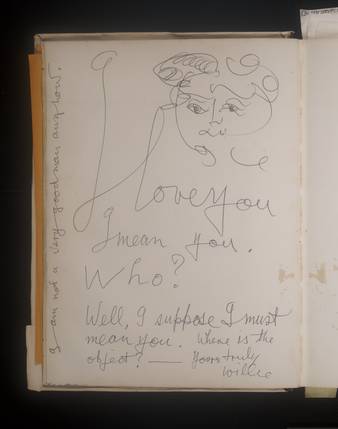 I love you
I mean you.
Who?
Well, I suppose I must
mean you. Where is the
object? — Yours truly
Willie
I am not a very good man anyhow.